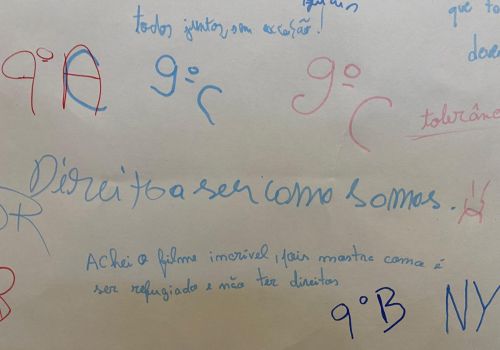 todos juntos, sem exceção!
que to
deve
9º A
9º C
9º C
tolerânc
Direito a ser como somos.
OR
Achei o filme incrível, pois mostra como é
ser refugiado e não ter direitos
B
9º B
NY